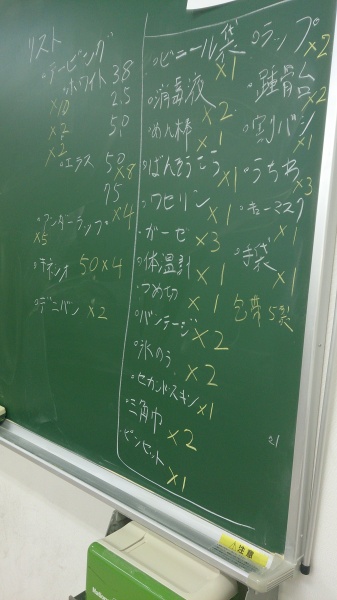 リスト
・テーピング
・ホワイト 38
×10 2.5
×2 50
×2
・エラス 50
×8
75
×4
・アンダーラップ
×5
・キネシオ 50×4
・デニバン ×2
・ビニール袋
×1
・消毒液
×2
・めん棒
×1
・ばんそうこう
×1
・ワセリン
×1
・ガーゼ
×3
・体温計
×1
・つめ切
×1
・バンテージ
×2
・氷のう
×2
・セカンドスキン
×1
・三角巾
×2
・ピンセット
×1
・ラップ
×2
・踵骨台
×2
・割バシ
×1
・うちわ
×3
・キューマスク
×1
・手袋
×1
包帯5裂
21
⚠注意